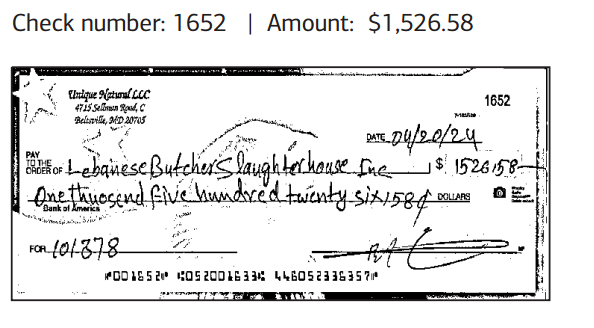 Check number: 1652 | Amount: $1,526.58
Unique Natural LLC
4715 Sellman Road, C
Beltsville, MD 20705
1652
DATE 04/20/24
PAY TO THE ORDER OF Lebanese Butcher Slaughterhouse Inc $ 1526.58
One thuosend five hundred twenty six/58¢ DOLLARS
Bank of America
FOR 101378
⑈001652⑈ ⑆052001633⑆ 446052336357⑈